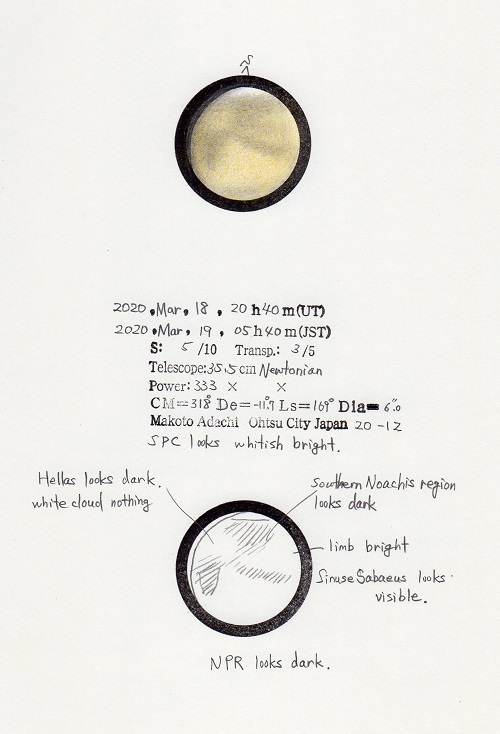 S
2020, Mar, 18, 20h40m(UT)
2020, Mar, 19, 05h40m(JST)
S: 5/10 Transp.: 3/5
Telescope: 35.5cm Newtonian
Power: 333 × ×
CM=318° De=-11.°7 Ls=169° Dia=6."0
Makoto Adachi Ohtsu City Japan 20-12
SPC looks whitish bright.
Hellas looks dark.
white cloud nothing
Southern Noachis region
looks dark
limb bright
Sinuse Sabaeus looks
visible.
NPR looks dark.